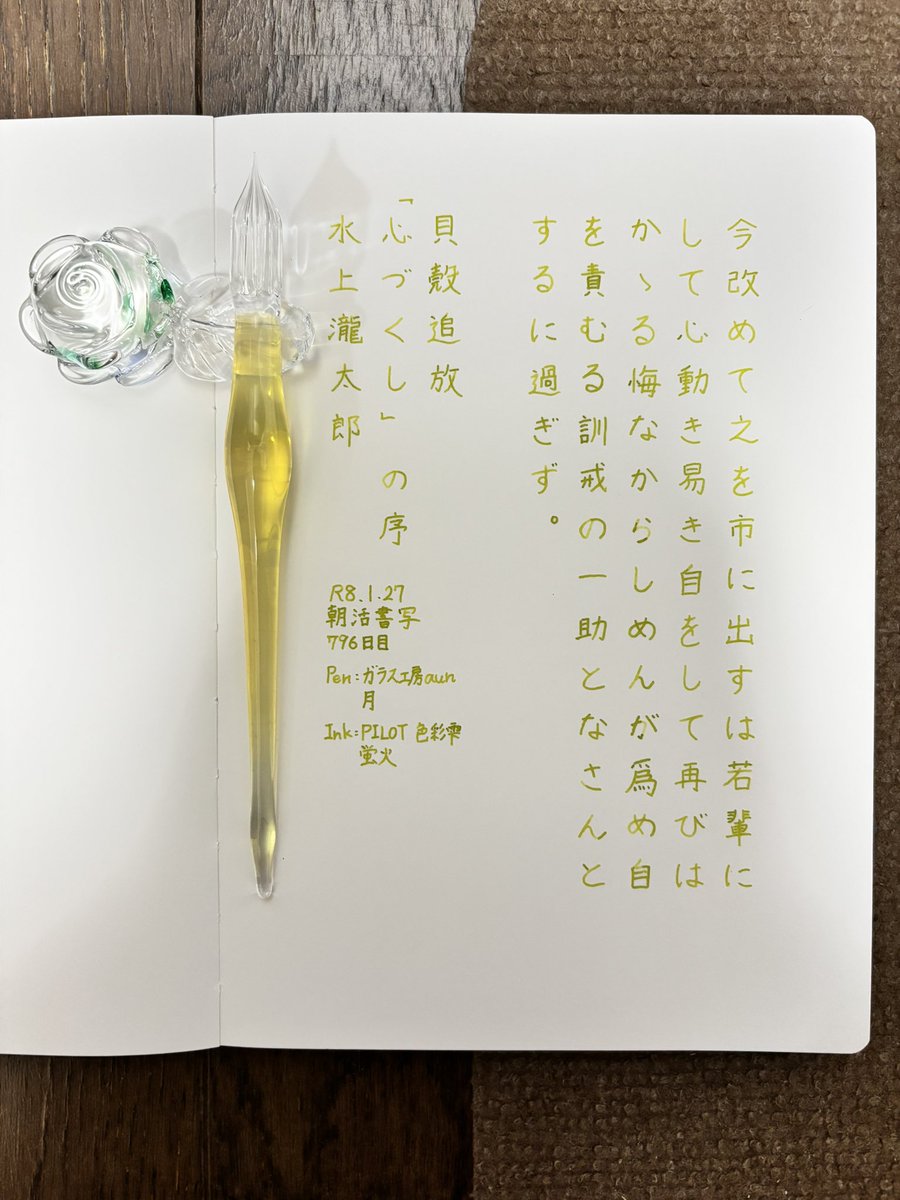 今改めて之を市に出すは若輩に
して心動き易き自をして再びは
かゝる悔なからしめんが爲め自
を責むる訓戒の一助となさんと
するに過ぎず。
貝殻追放
「心づくし」の序
水上瀧太郎
R8.1.27
朝活書写
796日目
Pen:ガラス工房aun
月
Ink:PILOT 色彩雫
蛍火